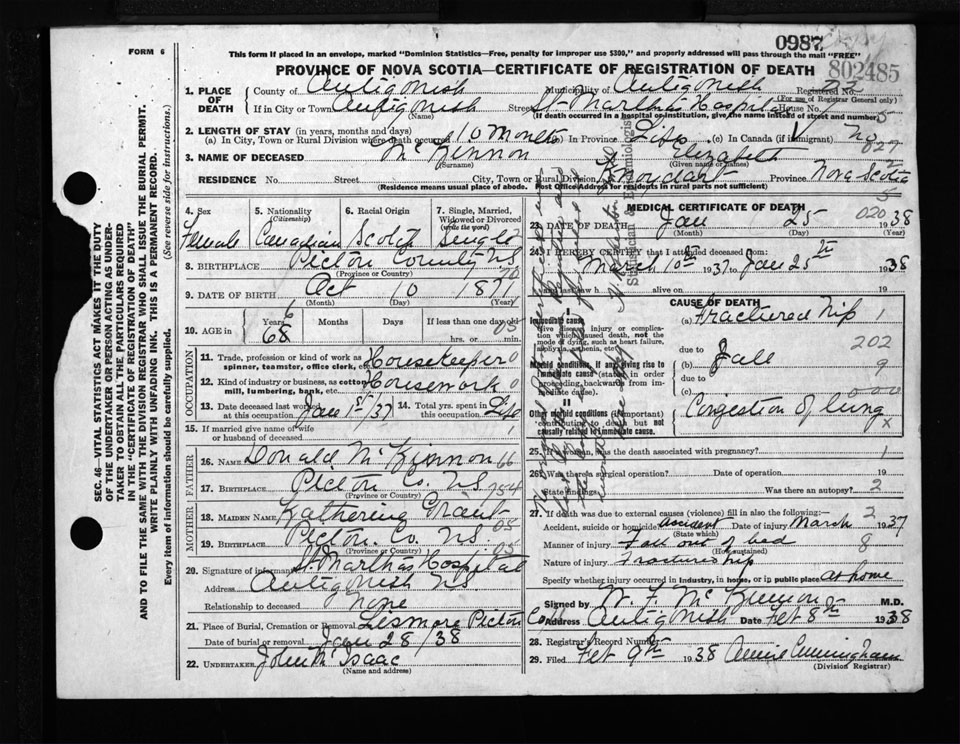 0987
FORM 6
This form if placed in an envelope, marked "Dominion Statistics—Free, penalty for improper use $300," and properly addressed will pass through the mail "FREE"
PROVINCE OF NOVA SCOTIA—CERTIFICATE OF REGISTRATION OF DEATH
802485
1. PLACE OF DEATH
County of Antigonish Municipality of Antigonish Registered No.
(For use of Registrar General only)
If in City or Town Antigonish Street St. Martha's Hospital House No.
(Name) (If death occurred in a hospital or institution, give the name instead of street and number)
2. LENGTH OF STAY (in years, months and days)
(a) In City, Town or Rural Division where death occurred 10 months (b) In Province Life (c) In Canada (if immigrant)
827
3. NAME OF DECEASED McKinnon Elizabeth
(Surname) (Given name or names)
RESIDENCE No. Street City, Town or Rural Division Knoydart Province Nova Scotia
(Residence means usual place of abode. Post Office Address for residents in rural parts not sufficient)
4. Sex Female
5. Nationality (Citizenship) Canadian
6. Racial Origin Scotch
7. Single, Married, Widowed or Divorced (write the word) Single
8. BIRTHPLACE Pictou County NS
(Province or Country)
9. DATE OF BIRTH Oct 10 1871
(Month) (Day) (Year)
10. AGE in Years Months Days If less than one day old
68 hrs. or min.
OCCUPATION
11. Trade, profession or kind of work as spinner, teamster, office clerk, etc. Housekeeper
12. Kind of industry or business, as cotton mill, lumbering, bank, etc. Housework
13. Date deceased last worked at this occupation Jan 1st/37 14. Total yrs. spent in this occupation Life
15. If married give name of wife or husband of deceased
FATHER
16. NAME Donald McKinnon 66
17. BIRTHPLACE Pictou Co. N.S. 254
(Province or Country)
MOTHER
18. MAIDEN NAME Katherine Grant
19. BIRTHPLACE Pictou Co. N.S. 05
(Province or Country)
20. Signature of informant St. Martha's Hospital
Address Antigonish N.S.
Relationship to deceased None
21. Place of Burial, Cremation or Removal Lismore Pictou Co
Date of burial or removal Jan 28/38
22. UNDERTAKER John McIsaac
(Name and address)
MEDICAL CERTIFICATE OF DEATH
23. DATE OF DEATH Jan 25 1938
(Month) (Day) (Year)
020
24. I HEREBY CERTIFY that I attended deceased from
March 10th 1937 to Jan 25th 1938
and last saw h alive on 19
CAUSE OF DEATH
I
Immediate cause
Give disease, injury or complication which caused death, not the mode of dying, such as heart failure, asphyxia, asthenia, etc.
(a) Fractured Hip 1
due to 202
Morbid conditions, if any, giving rise to immediate cause (stated in order proceeding backwards from immediate cause).
(b) Fall 9
due to
(c)
II
Other morbid conditions (if important) contributing to death but not causally related to immediate cause.
Congestion of lung
25. If a woman, was the death associated with pregnancy? 1
26. Was there a surgical operation? Date of operation 19
State findings Was there an autopsy? 2
27. If death was due to external causes (violence) fill in also the following:—
Accident, suicide or homicide Accident Date of injury March 1937
(State which)
Manner of injury Fall out of bed 8
(How sustained)
Nature of injury Fracture hip
Specify whether injury occurred in Industry, in home, or in public place at home
Signed by W. F. McKinnon M.D.
Address Antigonish Date Feb 8th 1938
28. Registrar's Record Number
29. Filed Feb 9th 1938 Annie Cunningham
(Division Registrar)
SEC. 46—VITAL STATISTICS ACT MAKES IT THE DUTY
OF THE UNDERTAKER OR PERSON ACTING AS UNDER-
TAKER TO OBTAIN ALL THE PARTICULARS REQUIRED
IN THE "CERTIFICATE OF REGISTRATION OF DEATH"
AND TO FILE THE SAME WITH THE DIVISION REGISTRAR WHO SHALL ISSUE THE BURIAL PERMIT.
WRITE PLAINLY WITH UNFADING INK. THIS IS A PERMANENT RECORD.
Every item of information should be carefully supplied. (See reverse side for instructions.)